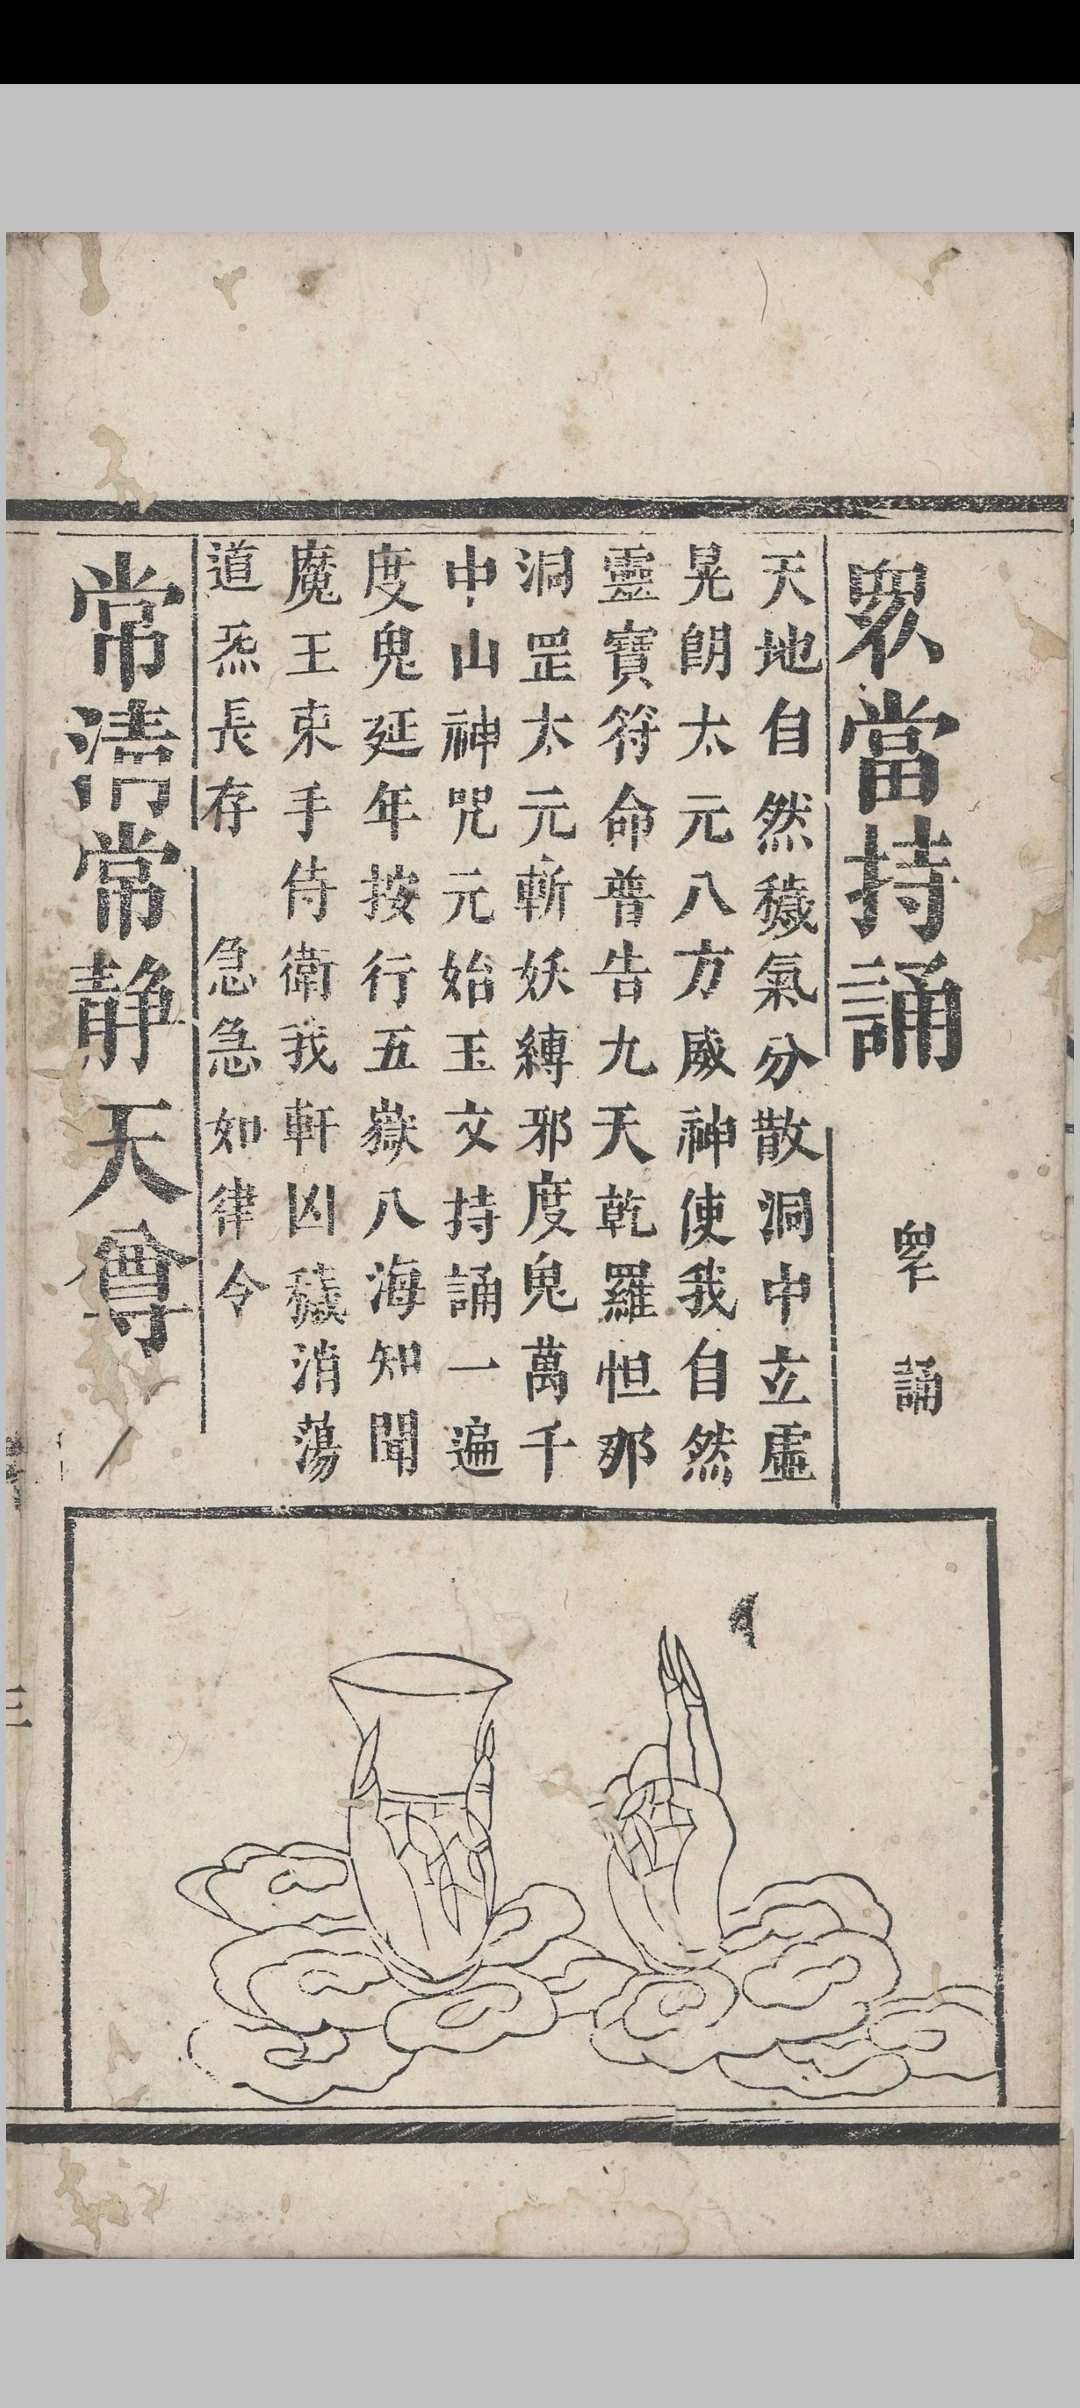 眾當持誦
眾誦
天地自然穢氣分散洞中玄虛
晃朗太元八方威神使我自然
靈寶符命普告九天乾羅怛那
洞罡太元斬妖縛邪度鬼萬千
中山神咒元始玉文持誦一遍
度鬼延年按行五嶽八海知聞
魔王束手侍衛我軒凶穢消蕩
道炁長存 急急如律令
常清常靜天尊
三